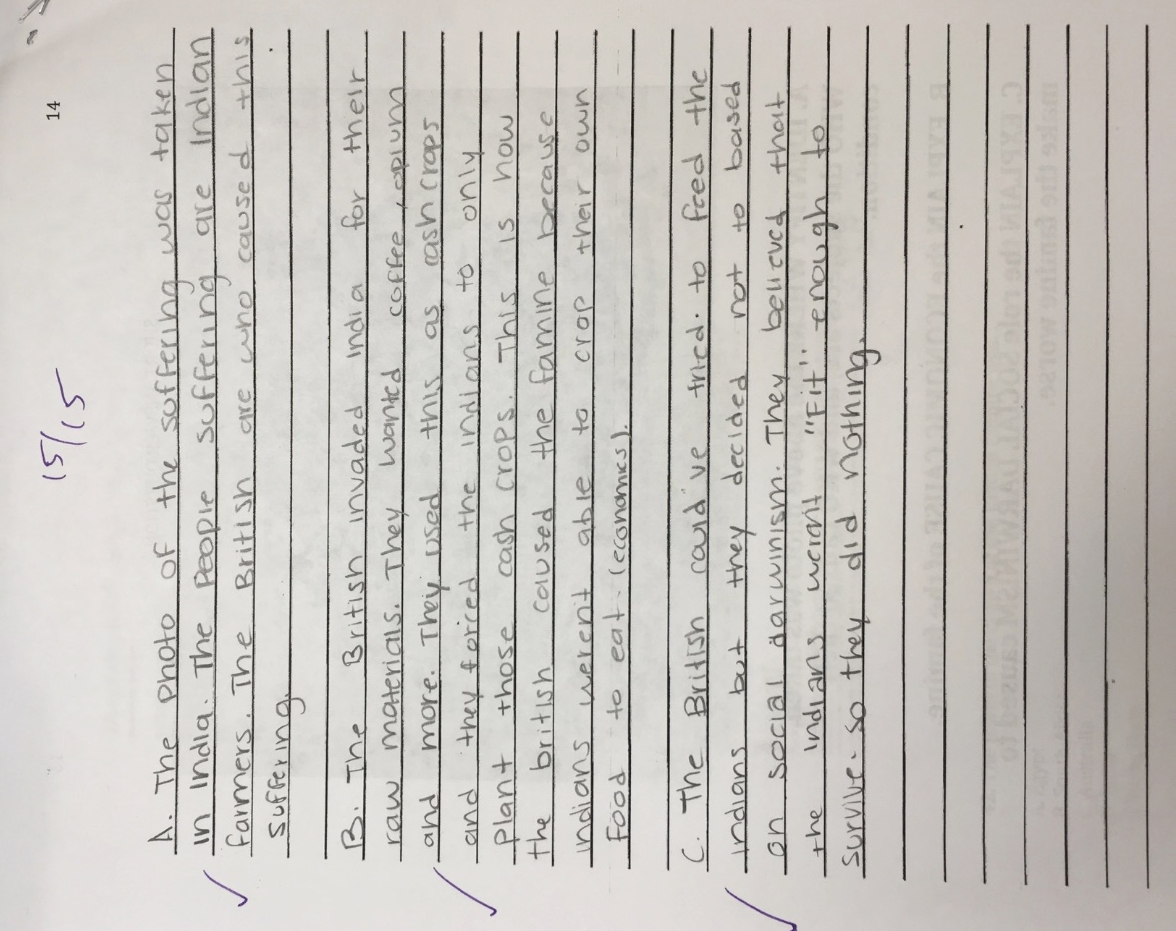 14
15/15
A. The photo of the suffering was taken
in India. The People suffering are Indian
farmers. The British are who caused this
suffering.
B. The British invaded India for their
raw materials. They wanted coffee, opium
and more. They used this as cash crops
and they forced the indians to only
plant those cash crops. This is how
the british caused the famine because
indians werent able to crop their own
food to eat. (economics).
C. The British could've tried to feed the
indians but they decided not to based
on social darwinism. They believed that
the Indians werent "Fit" enough to
survive. so they did nothing.
B. EXPLAIN the ECONOMIC CAUSE of the famine
C. EXPLAIN the role SOCIAL DARWINISM caused to
make the famine worse.